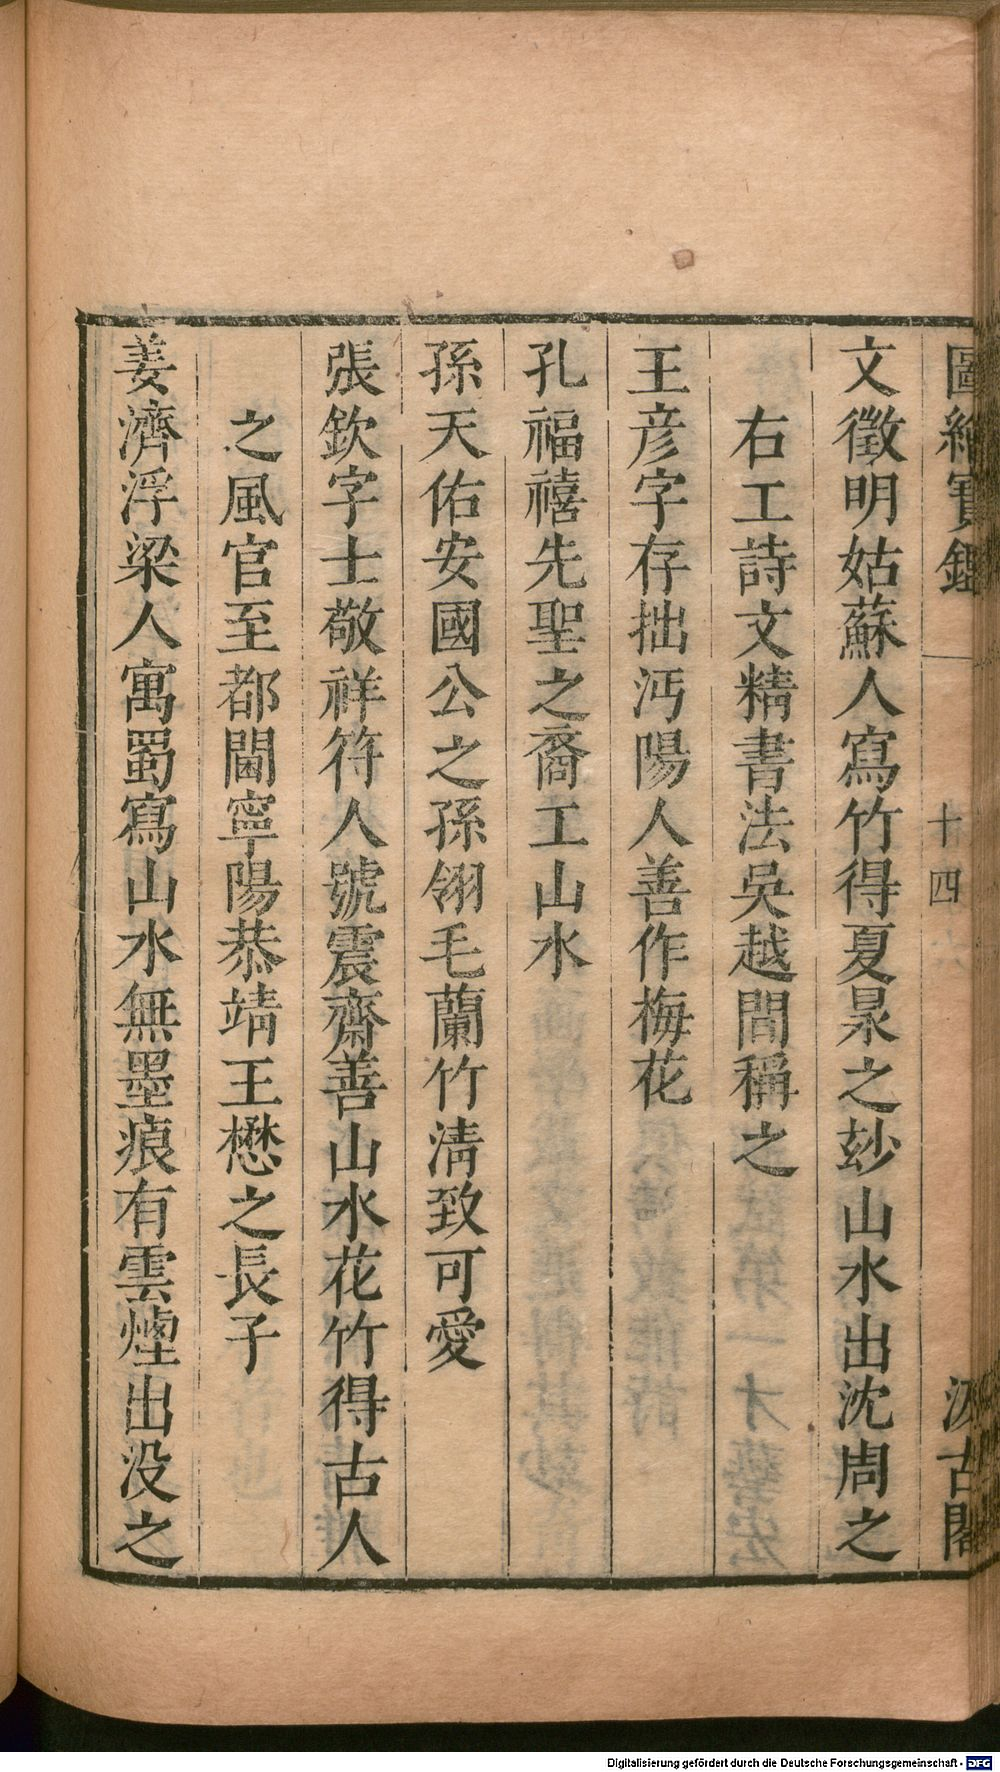 圖繪寶鑑 十四 汲古閣
文徵明姑蘇人寫竹得夏㫤之玅山水出沈周之
右工詩文精書法吳越間稱之
王彦字存拙沔陽人善作梅花
孔福禧先聖之裔工山水
孫天佑安國公之孫翎毛蘭竹清致可愛
張欽字士敬祥符人號震齋善山水花竹得古人
之風官至都閫寧陽恭靖王懋之長子
姜濟浮梁人寓蜀寫山水無墨痕有雲煙出没之
Digitalisierung gefördert durch die Deutsche Forschungsgemeinschaft - DFG